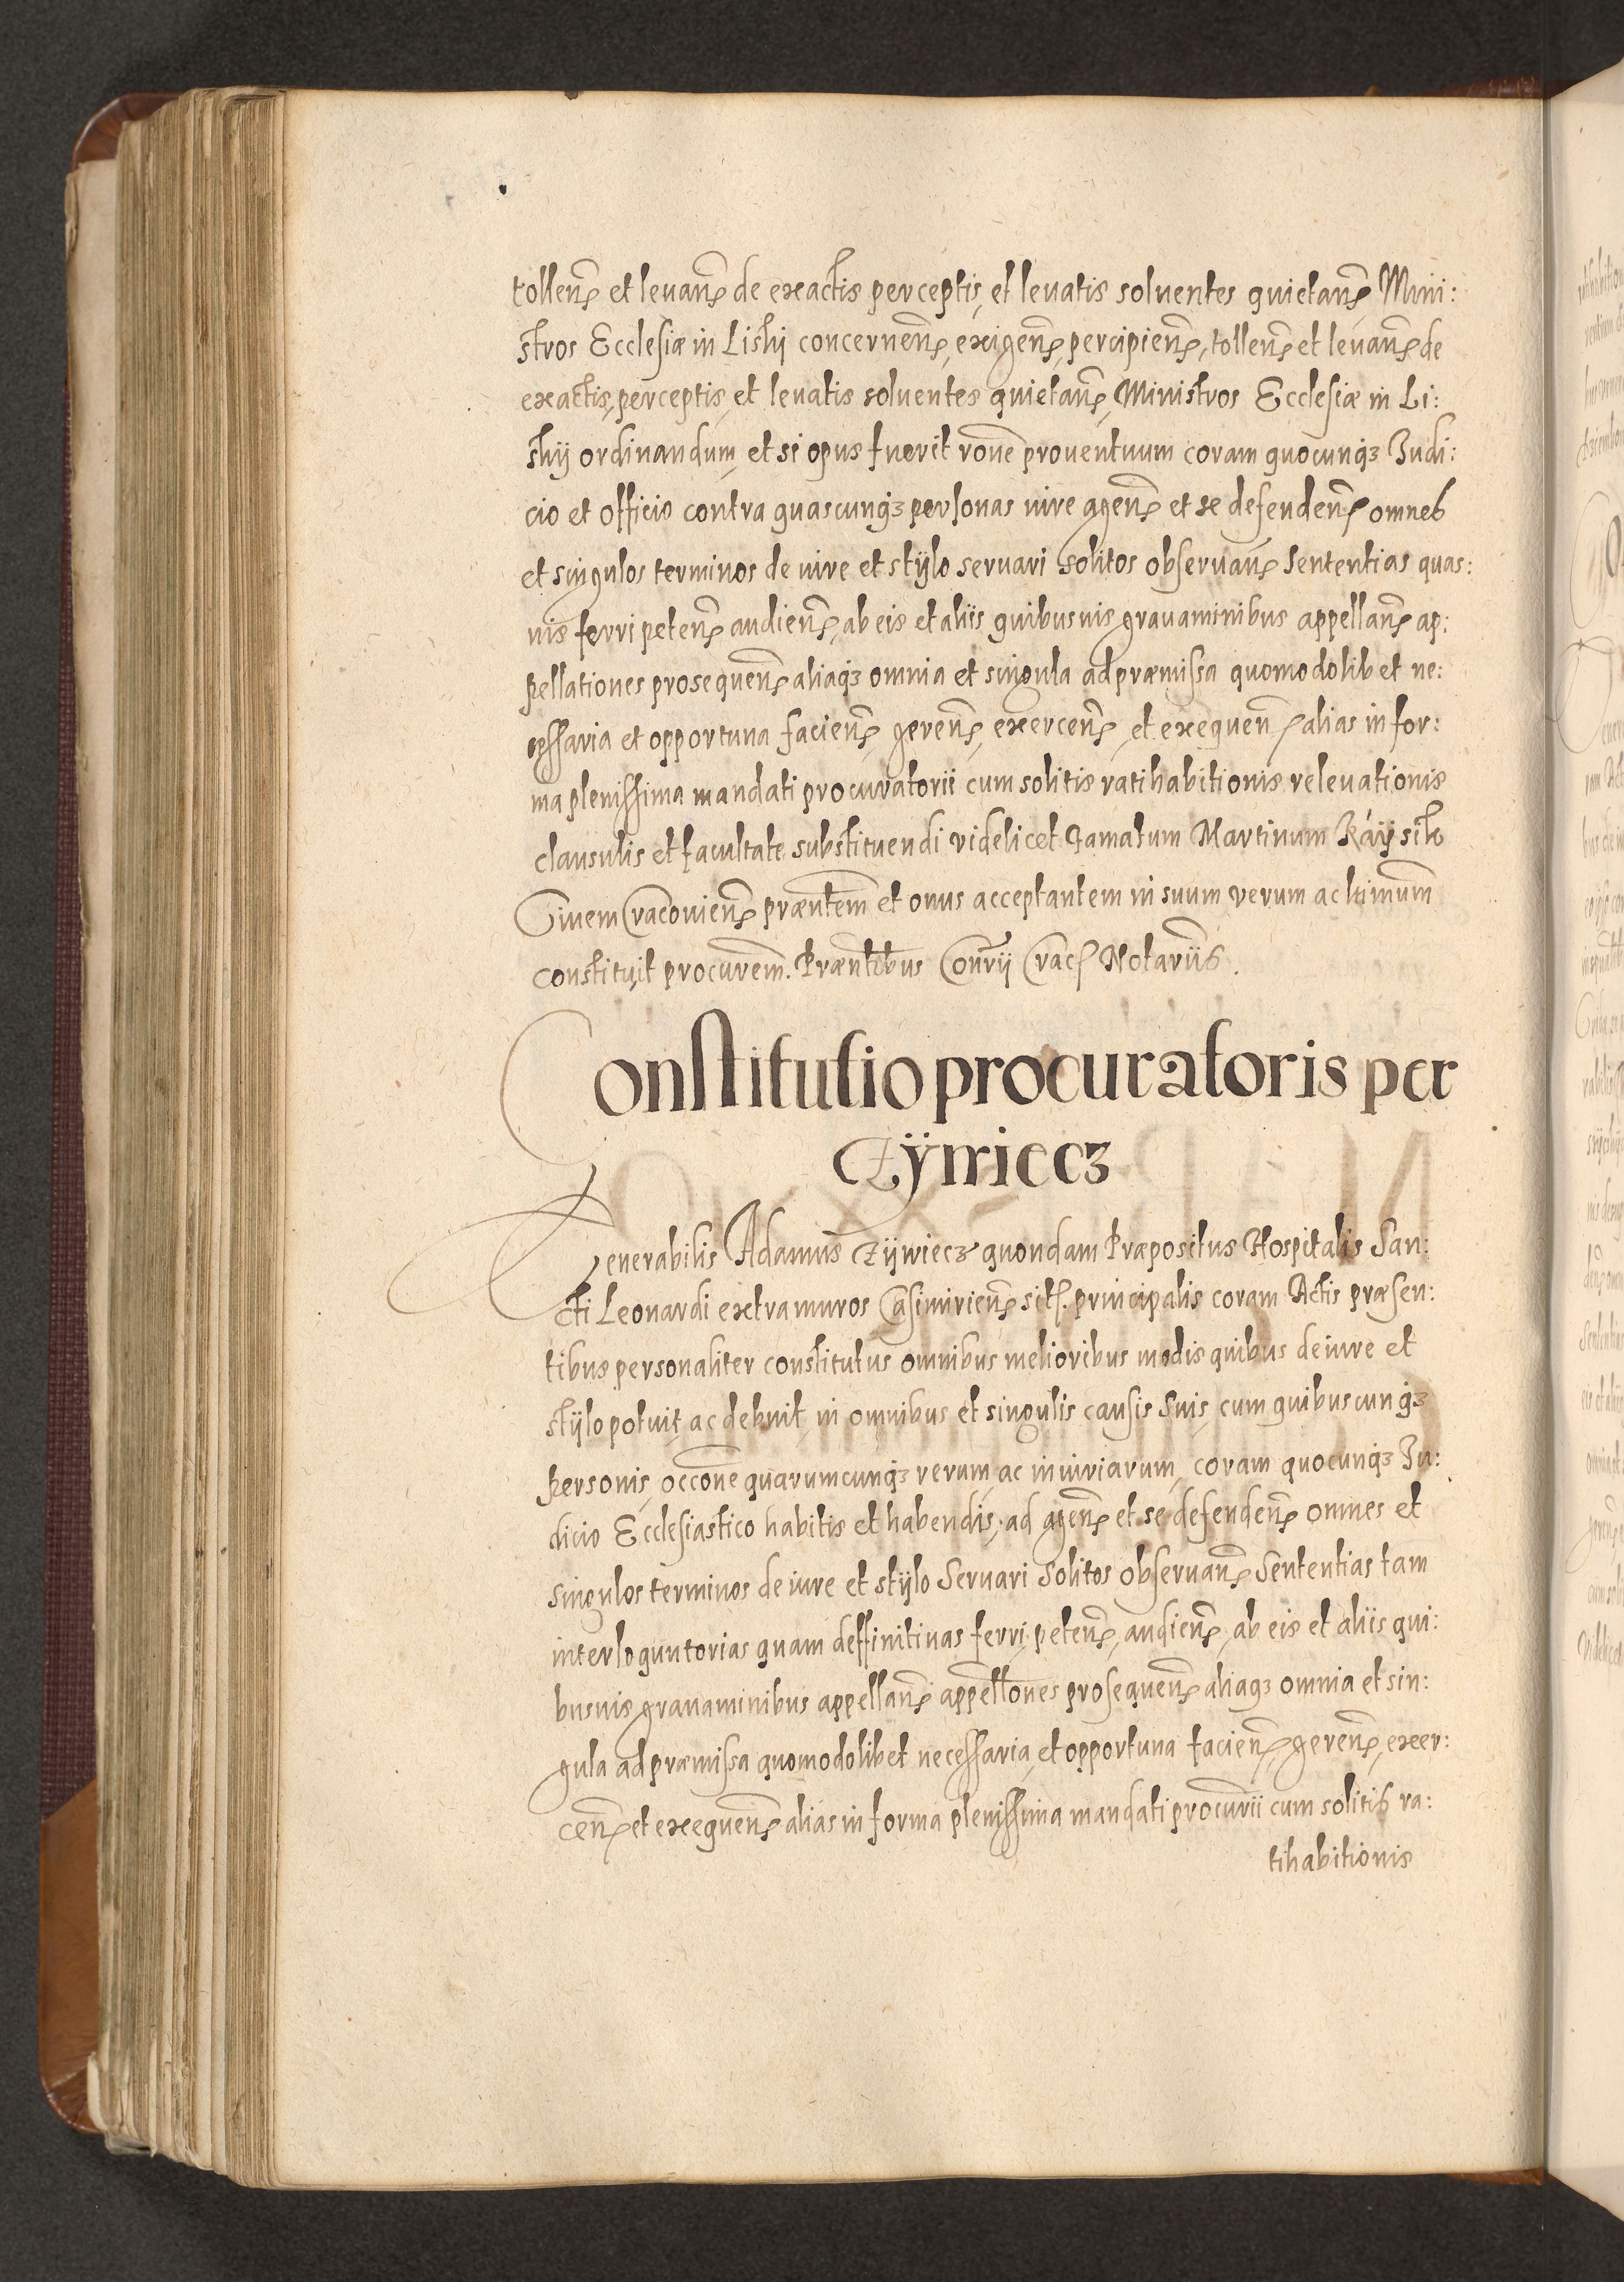 tollen̄ et leuan̄ de exactis perceptis, et leuatis soluentes quietan̄, Mini:
stros Ecclesiæ in Lishÿ concernen̄, exigen̄, percipien̄, tollen̄ et leuan̄ de
exactis, perceptis, et leuatis soluentes quietan̄, Ministros Ecclesiæ in Li:
shÿ ordinandum, et si opus fuerit rōne prouentuum coram quocunqꝫ Judi:
cio et officio contra quascunqꝫ personas iure agen̄ et se defenden̄ omnes
et singulos terminos de iure et stÿlo seruari solitos obseruan̄ Sententias quas:
uis ferri peten̄ audien̄, ab eis et aliis quibusuis grauaminibus appellan̄ ap:
pellationes prosequen̄ aliaqꝫ omnia et singula ad præmissa quomodolibet ne:
cessaria et opportuna facien̄, geren̄, exercen̄, et exequen̄ alias in for:
ma plenissima mandati procuratorii cum solitis ratihabitionis releuationis
clausulis et facultate substituendi videlicet Famatum Martinum
Ciuem Cracouien̄ præn̄tem et onus acceptantem in suum verum ac ltimum
constituit procurem̄. Præn̄tibus Con̄rÿ Crac̄ Notariis.
Constitutio procuratoris per
Zÿwiecz
Venerabilis Adamus Zÿwiecz quondam Præpositus Hospitalis San:
cti Leonardi extra muros Casimirien̄ sit̄. principalis coram Actis præsen:
tibus personaliter constitutus omnibus melioribus modis quibus de iure et
stÿlo potuit, ac debuit, in omnibus et singulis causis Suis, cum quibuscunqꝫ
Personis, occōne quarumcunqꝫ rerum, ac iniuriarum, coram quocunqꝫ Ju:
dicio Ecclesiastico habitis et habendis, ad agen̄ et se defenden̄ omnes et
singulos terminos de iure et stÿlo Seruari Solitos obseruan̄ Sententias tam
interloquutorias quam deffinitiuas ferri, peten̄, audien̄, ab eis et aliis qui:
busuis grauaminibus appellan̄ appellōnes prosequen̄ aliaqꝫ omnia et sin:
gula ad præmissa quomodolibet necessaria, et opportuna facien̄, geren̄, exer:
cen̄ et exequen̄ alias in forma plenissima mandati procurii cum solitis ra:
tihabitionis